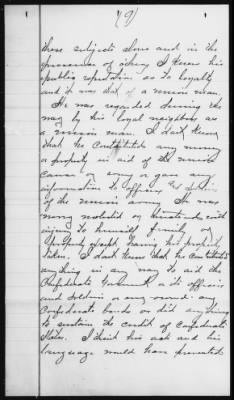 (9)
these subjects alone and in the
presence of others I know his
public reputation as to loyalty
and it was that of a union man.
He was regarded during the
war by his loyal neighbors as
a union man. I dont know
that he contributed any money
or property in aid of the union
cause or any or gave any
information to officers
of the union army He was
never molested or threatened with
injury to himself family or
property except having his property
taken. I dont know that he Contributed
anything in any way to aid the
Confederate Government or its officers
and Soldiers or any owned any
Confederate bonds or did anything
to sustain the credit of Confederate
States. I think his acts and his
language would have prevented